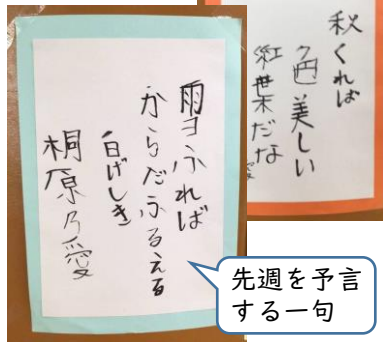 秋くれば
色美しい
紅葉だな
雪ふれば
からだふるえる
白げしき
桐原乃愛
先週を予言
する一句